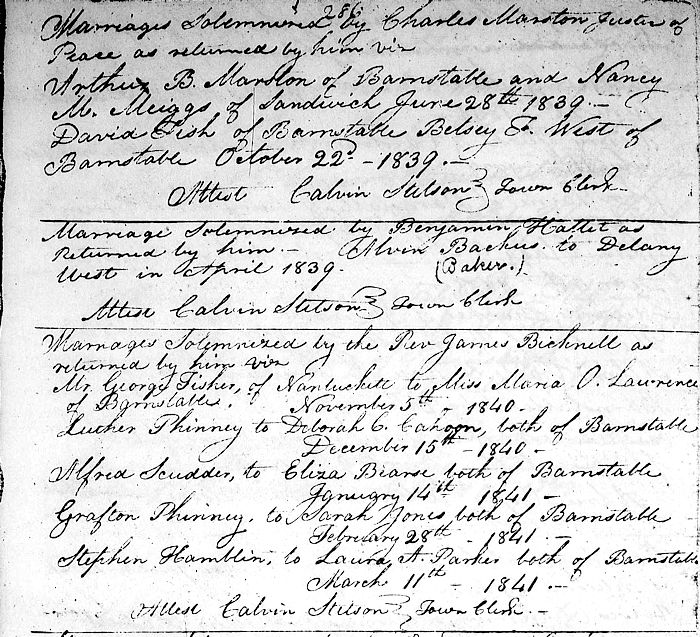 286
Marriages Solemnized by Charles Marston Justice of
Peace as returned by him viz
Arthur B. Marston of Barnstable and Nancy
M. Meiggs of Sandwich June 28th 1839.—
David Fish of Barnstable Betsey F. West of
Barnstable October 22d — 1839.—
Attest Calvin Stetson } Town Clerk
Marriage Solemnized by Benjamin Hallet as
Returned by him — Alvin Backus to Delany
West in April 1839. (Baker.)
Attest Calvin Stetson } Town Clerk
Marriages Solemnized by the Rev James Bicknell as
returned by him viz
Mr. George Fisher, of Nantuckett to Miss Maria O. Lawrence
of Barnstable. November 5th — 1840.
Luther Phinney to Deborah C. Cahoon, both of Barnstable
December 15th — 1840—
Alfred Scudder, to Eliza Bearse both of Barnstable
January 14th 1841—
Grafton Phinney, to Sarah Jones both of Barnstable
February 28th — 1841—
Stephen Hamblin, to Laura A. Parker both of Barnstable
March 11th — 1841.—
Attest Calvin Stetson } Town Clerk—